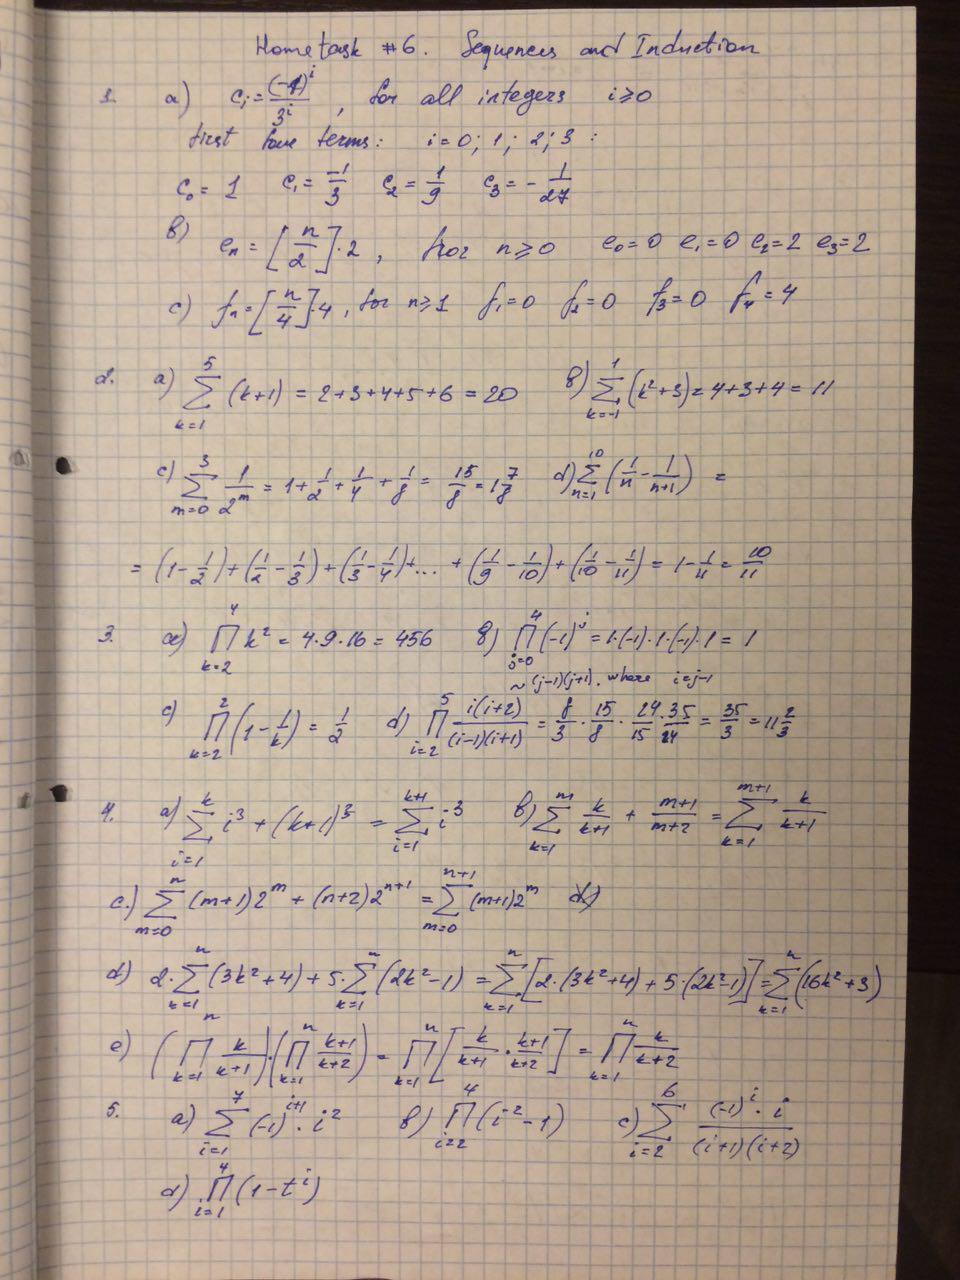 Hometask #6. Sequences and Induction
1. a) cᵢ = (-1)^i / 3^i , for all integers i ≥ 0
first four terms: i = 0; 1; 2; 3 :
c₀ = 1 c₁ = -1/3 c₂ = 1/9 c₃ = - 1/27
b) eₙ = [n/2]·2 , for n ≥ 0 e₀ = 0 e₁ = 0 e₂ = 2 e₃ = 2
c) fₙ = [n/4]·4 , for n ≥ 1 f₁ = 0 f₂ = 0 f₃ = 0 f₄ = 4
2. a) ∑_{k=1}^{5} (k+1) = 2+3+4+5+6 = 20 b) ∑_{k=-1}^{1} (k²+3) = 4+3+4 = 11
c) ∑_{m=0}^{3} 1/2^m = 1 + 1/2 + 1/4 + 1/8 = 15/8 = 1 7/8 d) ∑_{n=1}^{10} (1/n - 1/(n+1)) =
= (1 - 1/2) + (1/2 - 1/3) + (1/3 - 1/4) + ... + (1/9 - 1/10) + (1/10 - 1/11) = 1 - 1/11 = 10/11
3. a) ∏_{k=2}^{4} k² = 4·9·16 = 456 b) ∏_{j=0}^{4} (-1)^j = 1·(-1)·1·(-1)·1 = 1
~ (j-1)(j+1), where i=j-1
c) ∏_{k=2}^{2} (1 - 1/k) = 1/2 d) ∏_{i=2}^{5} i(i+2) / (i-1)(i+1) = 8/3 · 15/8 · 24/15 · 35/24 = 35/3 = 11 2/3
4. a) ∑_{i=1}^{k} i³ + (k+1)³ = ∑_{i=1}^{k+1} i³ b) ∑_{k=1}^{m} k/(k+1) + (m+1)/(m+2) = ∑_{k=1}^{m+1} k/(k+1)
c.) ∑_{m=0}^{n} (m+1)2^m + (n+2)2^{n+1} = ∑_{m=0}^{n+1} (m+1)2^m
d) 2·∑_{k=1}^{n} (3k²+4) + 5·∑_{k=1}^{n} (2k²-1) = ∑_{k=1}^{n} [2·(3k²+4) + 5·(2k²-1)] = ∑_{k=1}^{n} (16k²+3)
e) (∏_{k=1}^{n} k/(k+1))·(∏_{k=1}^{n} (k+1)/(k+2)) = ∏_{k=1}^{n} [k/(k+1) · (k+1)/(k+2)] = ∏_{k=1}^{n} k/(k+2)
5. a) ∑_{i=1}^{7} (-1)^{i+1} · i² b) ∏_{i=2}^{4} (i²-1) c) ∑_{i=2}^{6} (-1)^i · i / (i+1)(i+2)
d) ∏_{i=1}^{4} (1-t^i)